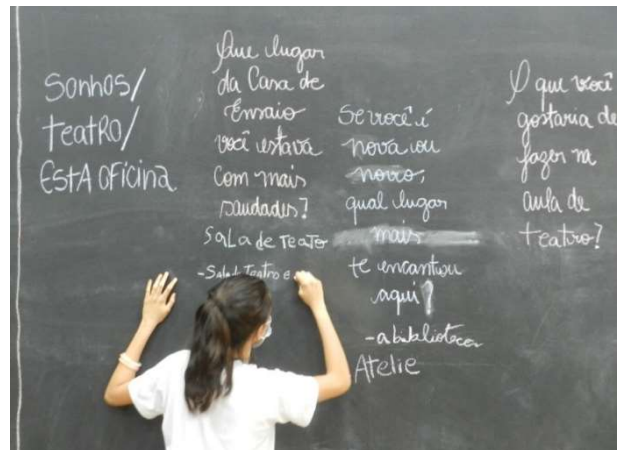 Sonhos/
teatRO/
EstA OFicina
Que lugar
da Casa de
Ensaio
você estava
com mais
saudades?
Sala de Teatro
-Sala Teatro e
Se você é
nova ou
novo,
qual lugar
mais
te encantou
aqui?
-a biblioteca
Atelie
O que você
gostaria de
fazer na
aula de
teatro?